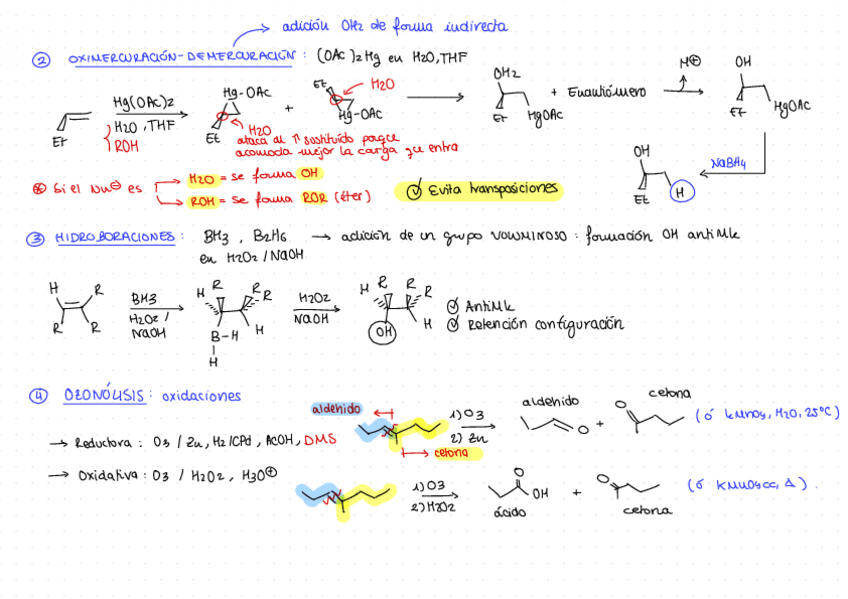 adición OH2 de forma indirecta
② OXIMERCURACIÓN-DEMERCURACIÓN : (OAc)2Hg en H2O, THF
Et
Hg(OAc)2
H2O, THF
ROH
Hg-OAc
Et
H2O
ataca al Π sustituído porque
acomoda mejor la carga
+
Et
H2O
Hg-OAc
OH2
Et
HgOAc
+ Enantiómero
H⊕
OH
Et
HgOAc
NaBH4
OH
Et
H
⊛ Si el Nu⊖ es
H2O = se forma OH
ROH = se forma ROR (éter)
Evita transposiciones
③ HIDROBORACIONES : BH3, B2H6 → adición de un grupo VOLUMINOSO : formación OH antiMk
en H2O2 / NaOH
H R
R R
BH3
H2O2 /
NaOH
H R R R
B-H H
H
H2O2
NaOH
H R R R
OH H
AntiMk
Retención configuración
④ OZONÓLISIS : oxidaciones
→ Reductora : O3 / Zn, H2/CPd, AcOH, DMS
aldehido
cetona
1) O3
2) Zn
aldehido
O
+
cetona
O
(ó KMnO4, H2O, 25°C)
→ Oxidativa : O3 / H2O2, H3O⊕
1) O3
2) H2O2
O
OH
ácido
+
O
cetona
(ó KMnO4cc, Δ).